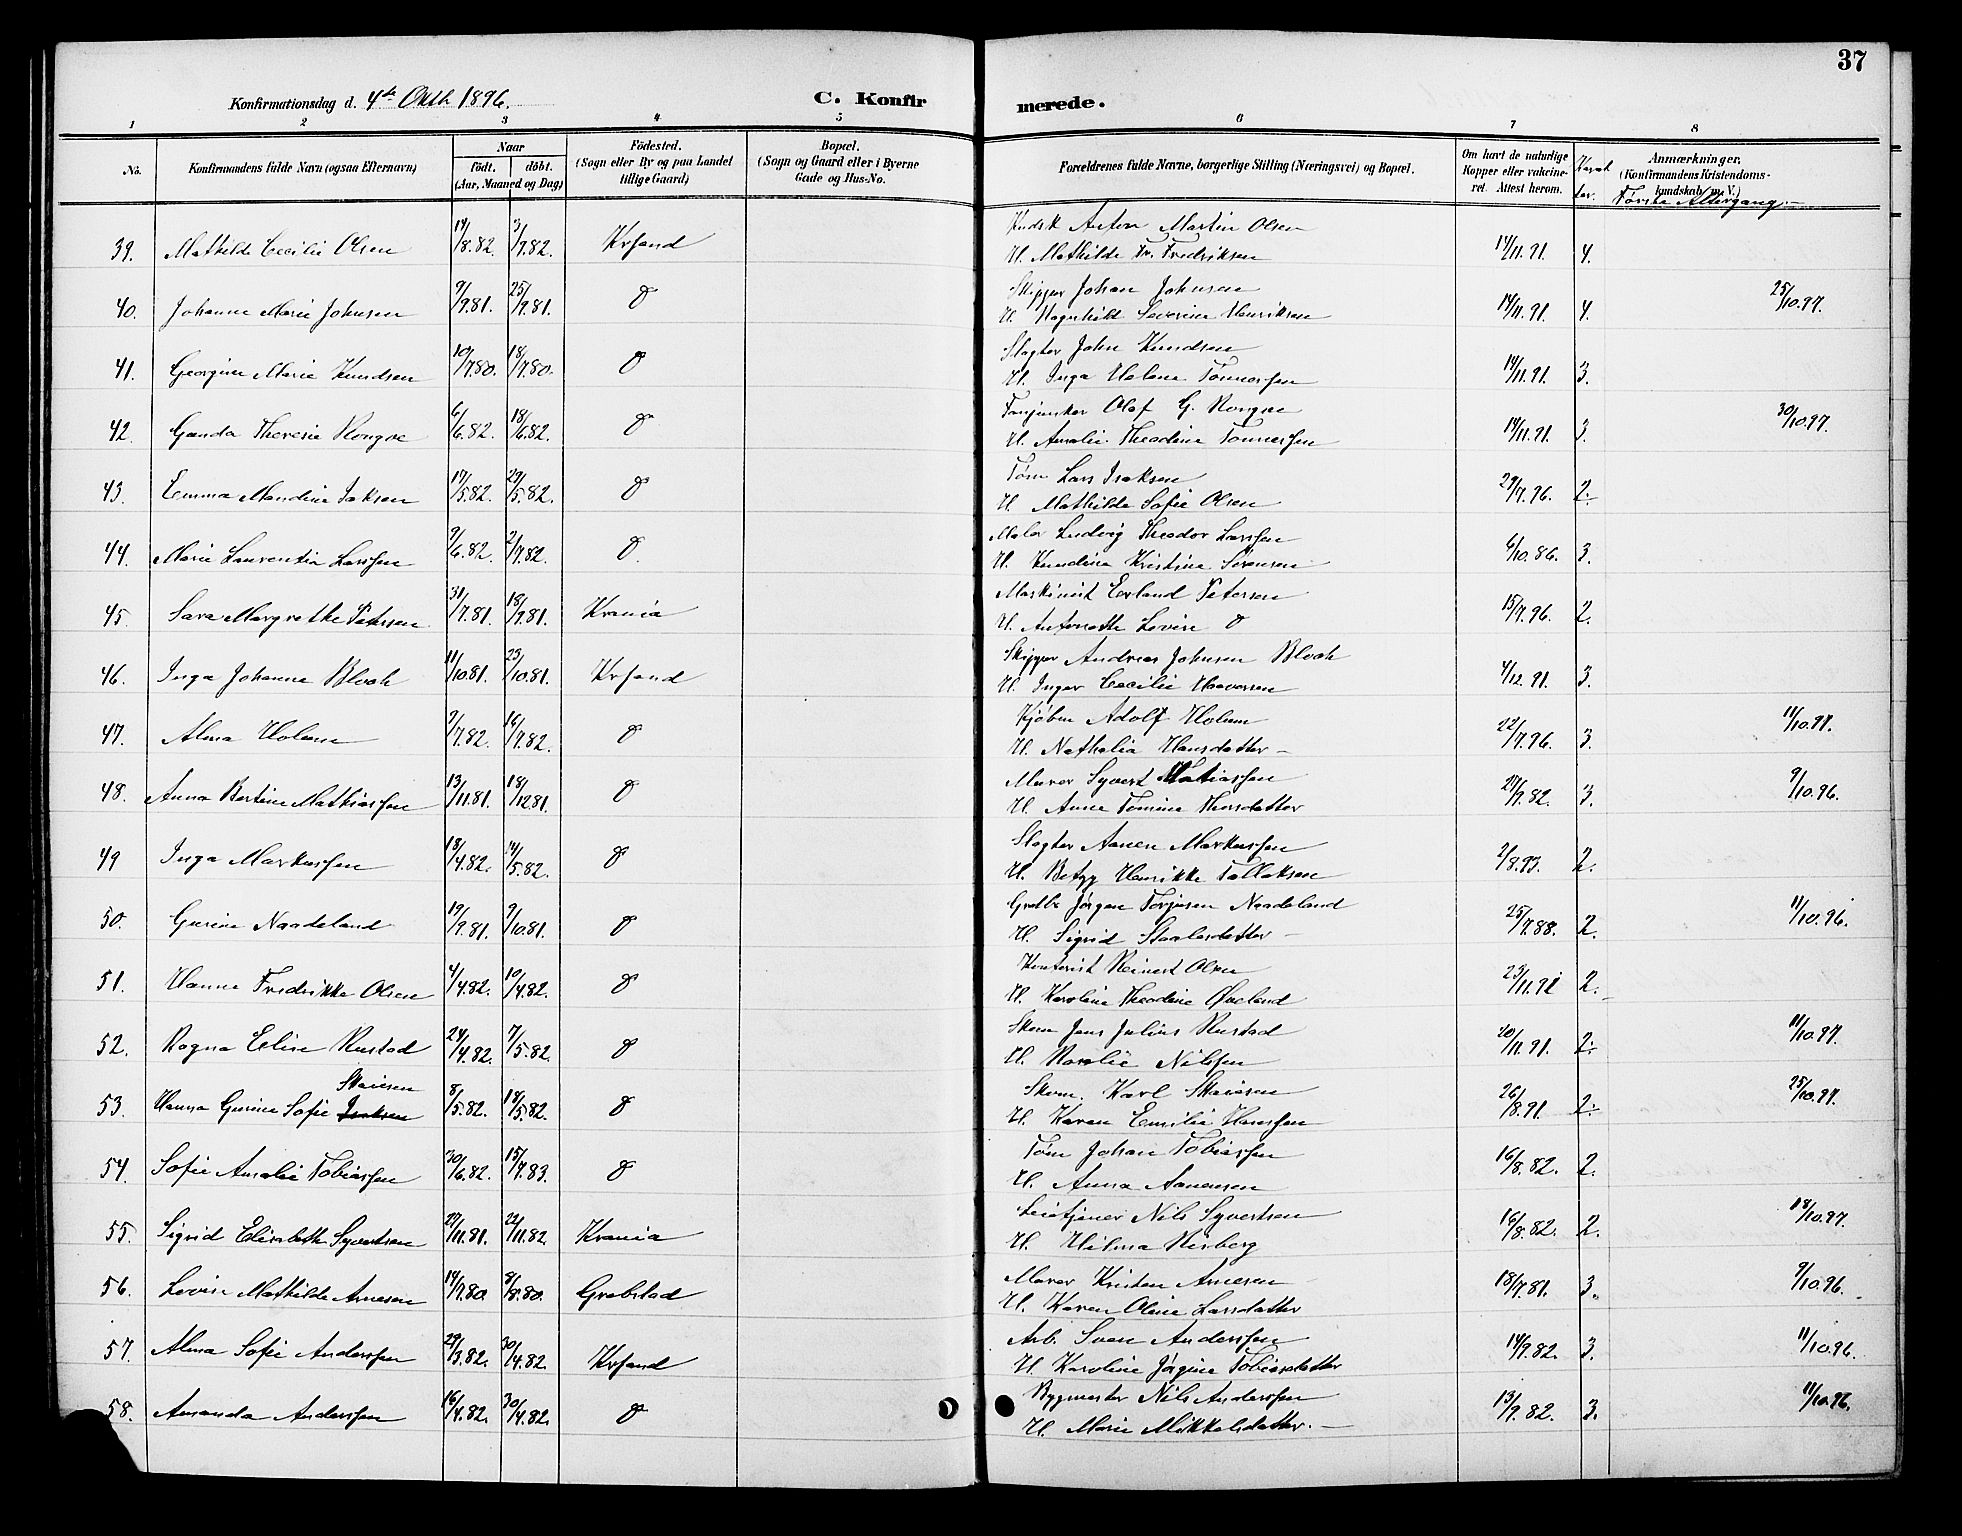 37
Konfirmationsdag d. 4de Oktb 1896.
C. Konfirmerede.
1 2 3 4 5 6 7 8
No. Konfirmandens fulde Navn (ogsaa Efternavn) Naar født. døbt. (Aar, Maaned og Dag) Fødested. (Sogn eller By og paa Landet tillige Gaard) Bopæl. (Sogn og Gaard eller i Byerne Gade og Hus-No. Forældrenes fulde Navne, borgerlige Stilling (Næringsvei) og Bopæl. Om havt de naturlige Kopper eller vakcineret. Attest herom. Karakter. Anmærkninger. (Konfirmandens Kristendomskundskab m. V.) Første Altergang.
Kudsk Anton Martin Olsen
39. Mathilde Cecilie Olsen 17/8.82. 3/9.82. Krsand H. Mathilde Fr. Fredriksen 14/11.91. 4.
Skipper Johan Johnsen
40. Johanne Marie Johnsen 9/9.81. 25/9.81. " H. Severine Henriksen 14/11.91. 4. 25/10.97.
Slagter John Knudsen
41. Georgine Marie Knudsen 10/7.80. 18/7.80. " H. Inga Helene Tønnessen 14/11.91. 3.
Fanjunker Olaf G. Rongve
42. Ganda Theresie Rongve 6/6.82. 18/6.82. " H. Amalie Theodine Tønnessen 14/11.91. 3. 30/10.97.
Tøm Lars Isaksen
43. Emma Mandine Isaksen 17/5.82. 29/5.82. " H. Mathilde Sofie Olsen 29/7.96. 2.
Maler Ludvig Theodor Larssen
44. Marie Laurentia Larssen 9/6.82. 2/7.82. " H. Kundine Kristine Sørensen 6/10.86. 3.
Maskinist Erland Petersen
45. Sara Margrethe Petersen 31/7.81. 18/9.81. Krania H. Antonette Lovise " 15/7.96. 2.
Skipper Andreas Johnsen Bloch
46. Inga Johanne Bloch 11/10.81. 23/10.81. Krsand H. Inger Cecilie Haavorsen 4/12.91. 3.
Kjøbm Adolf Holum
47. Alma Holum 9/7.82. 16/7.82. " H. Nathalia Hansdatter 22/7.96. 3. 11/10.97.
Murer Syvert Matiassen
48. Anna Bertine Mathiassen 13/11.81. 18/12.81. " H. Anne Tomine Thorsdatter 27/9.82. 3. 9/10.96.
Slagter Aanen Markussen
49 Inga Markussen 18/4.82. 14/5.82. " H. Betzy Henrikke Tallaksen 2/8.93. 2.
Jørgen Torjusen Naadeland
50. Gurine Naadeland 19/9.81. 9/10.81. " H. Sigrid Staalesdatter 25/7.88. 2. 11/10.96.
Kontorist Reinert Olsen
51. Hanne Fredrikke Olsen 4/4.82. 10/4.82. " H. Karoline Theodine Øveland 23/11.91 2.
Skom Jens Julius Rustad
52. Ragna Elise Rustad 24/4.82. 7/5.82. " H. Rosalie Nilssen 20/11.91. 2. 11/10.97.
Skaiesen Skom. Karl Skaiesen
53. Hanna Gurine Sofie Isaksen 8/5.82. 18/5.82. " H. Karen Emilie Hanssen 26/8.91. 2. 25/10.97.
Tøm Johan Tobiassen
54. Sofie Amalie Tobiassen 30/6.82. 15/7.83. " H. Anna Aanensen 16/8.82. 2.
Nils Syvertsen
55. Sigrid Elisabeth Syvertsen 27/11.81. 22/11.82. Krania H. Hilma Risberg 16/8.82. 2. 18/10.97.
Murer Kristen Arnesen
56. Lovise Mathilde Arnesen 14/7.80. 8/8.80. Grebstad H. Karen Oline Larsdatter 18/7.81. 3. 9/10.96.
Arb. Sven Anderssen
57. Alma Sofie Anderssen 29/3.82. 30/4.82. Krsand H. Karoline Jørgine Tobiasdatter 14/9.82. 3. 11/10.96.
Bygmester Nils Anderssen
58. Amanda Anderssen 16/4.82. 30/4.82. " H. Marie Mikkelsdatter. 13/9.82. 3. 11/10.96.